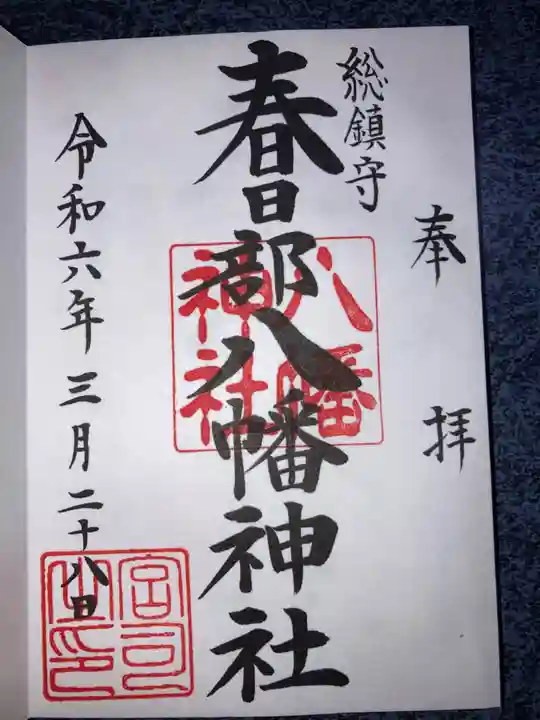 奉拝
総鎮守
春日部八幡神社
八幡
神社
令和六年三月二十八日
宮司
之印